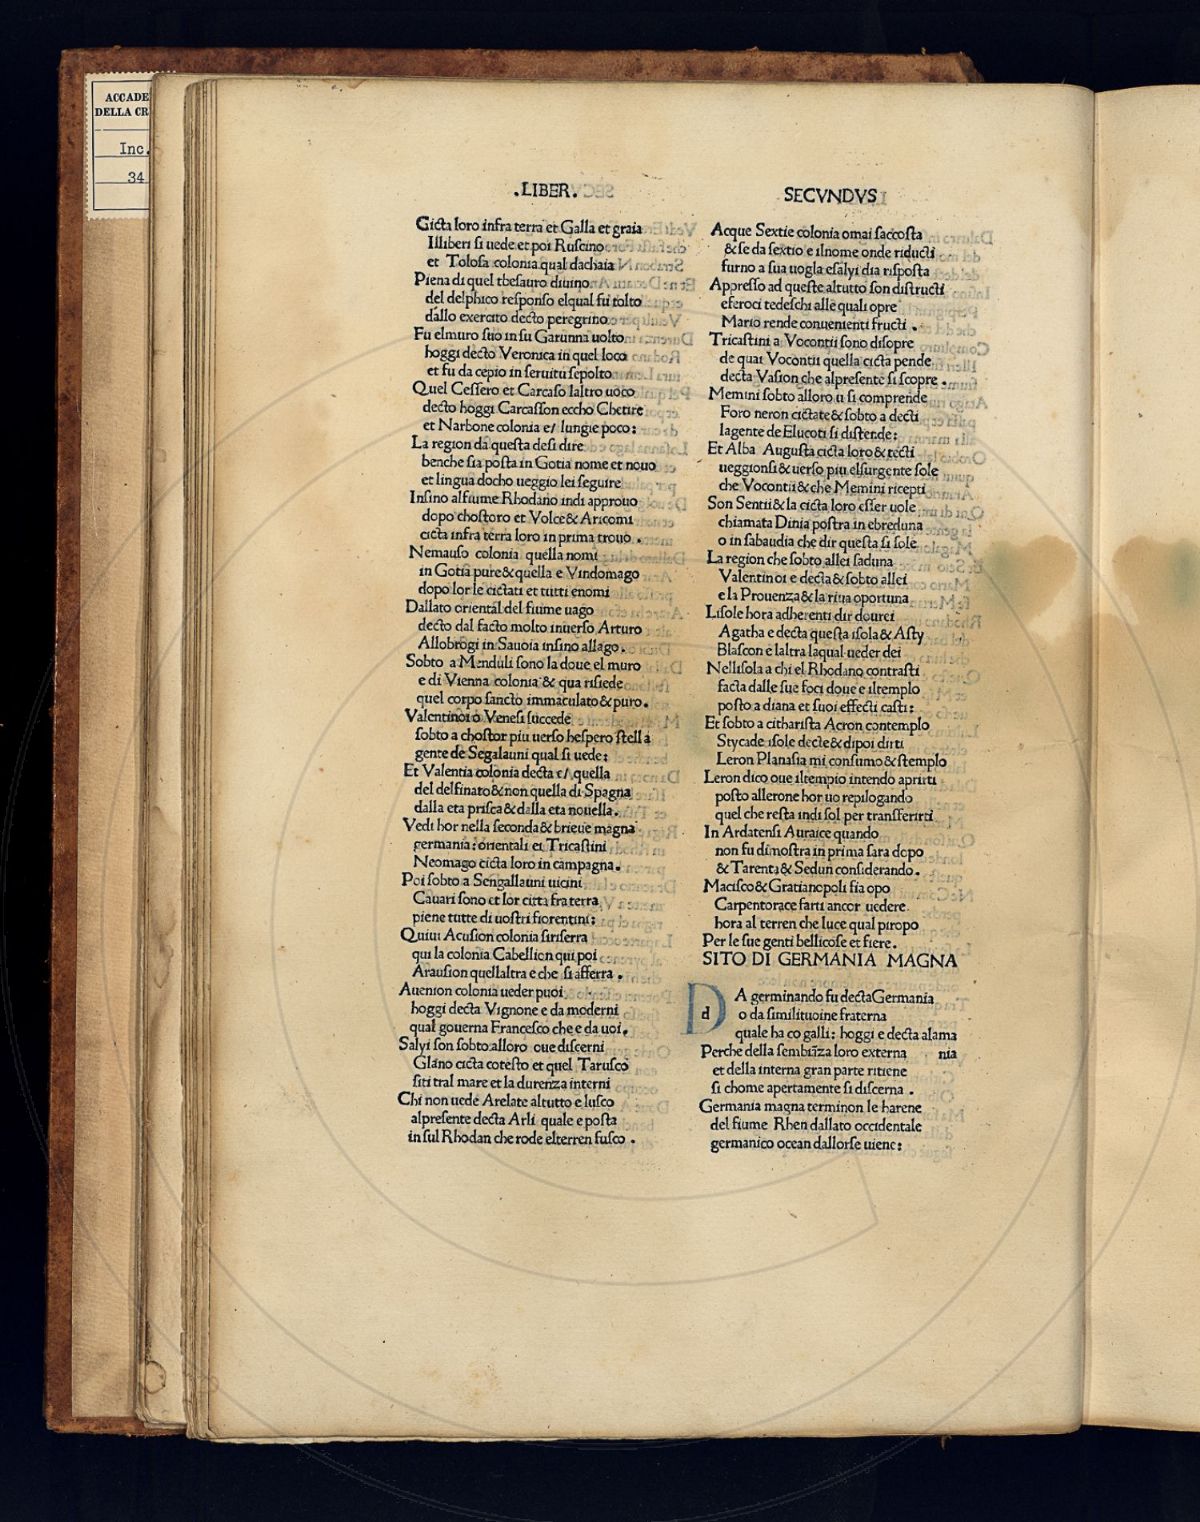 ACCADE
DELLA CR
Inc.
34
.LIBER.
Cicta loro infra terra et Galla et graia
Illiberi si uede et poi Ruscino
et Tolosa colonia qual dachaia
Piena di quel thesauro diuino
del delphico responso elqual fu tolto
dallo exercito decto peregrino
Fu elmuro suo in su Garunna uolto
hoggi decto Veronica in quel loco
et fu da cepio in seruitu sepolto
Quel Cessero et Carcaso laltro uoco
decto hoggi Carcasson eccho Chetire
et Narbone colonia e/ lungie poco:
La region da questa desi dire
benche sia posta in Gotia nome et nouo
et lingua docho ueggio lei seguire
Insino alfiume Rhodano indi approuo
dopo chostoro et Volce & Aricomi
cicta infra terra loro in prima trouo .
Nemauso colonia quella nomi
in Gotia pure & quella e Vindomago
dopo lor le cictati et tutti enomi
Dallato oriental del fiume uago
decto dal facto molto inuerso Arturo
Allobrogi in Sauoia insino allago.
Sobto a Menduli sono la doue el muro
e di Vienna colonia & qua risiede
quel corpo sancto immaculato & puro.
Valentinoi o Venesi succede
sobto a chostor piu uerso hespero stella
gente de Segalauni qual si uede:
Et Valentia colonia decta e/ quella
del delfinato & non quella di Spagna
dalla eta prisca & dalla eta nouella.
Vedi hor nella seconda & brieue magna
germania: orientali et Tricastini
Neomago cicta loro in campagna.
Poi sobto a Sengallauni uicini
Cauari sono et lor citta fra terra
piene tutte di uostri fiorentini:
Quiui Acusion colonia siriserra
qui la colonia Cabellion qui poi
Arausion quellaltra e che si afferra .
Auenion colonia ueder puoi
hoggi decta Vignone e da moderni
qual gouerna Francesco che e da uoi.
Salyi son sobto alloro oue discerni
Glano cicta cotesto et quel Tarusco
siti tral mare et la durenza interni
Chi non uede Arelate altutto e lusco
alpresente decta Arli quale e posta
in sul Rhodan che rode elterren fusco .
SECVNDVS
Acque Sextie colonia omai saccosta
& se da sextio e ilnome onde riducti
furno a sua uogla esalyi dia risposta
Appresso ad queste altutto son distructi
eferoci tedeschi alle quali opre
Mario rende conuenienti fructi .
Tricastini a Vocontii sono disopre
de quai Vocontii quella cicta pende
decta Vasion che alpresente si scopre .
Memini sobto alloro u si comprende
Foro neron cictate & sobto a decti
lagente de Elucoti si distende:
Et Alba Augusta cicta loro & tecti
ueggionsi & uerso piu elsurgente sole
che Vocontii & che Memini ricepti
Son Sentii & la cicta loro esser uole
chiamata Dinia postra in ebreduna
o in sabaudia che dir questa si sole
La region che sobto allei saduna
Valentinoi e decta & sobto allei
e la Prouenza & la riua oportuna
Lisole hora adherenti dir dourei
Agatha e decta questa isola & Asty
Blascon e laltra laqual ueder dei
Nellisola a chi el Rhodano contrasti
facta dalle sue foci doue e iltemplo
posto a diana et suoi effecti casti:
Et sobto a citharista Acron contemplo
Stycade isole decte & dipoi dirti
Leron Planasia mi consumo & stemplo
Leron dico oue iltempio intendo aprirti
posto allerone hor uo repilogando
quel che resta indi sol per transferirti
In Ardatensi Auraice quando
non fu dimostra in prima sara dopo
& Tarenta & Sedun considerando.
Macisco & Gratianopoli fia opo
Carpentorace farti ancor uedere
hora al terren che luce qual piropo
Per le sue genti bellicose et fiere.
SITO DI GERMANIA MAGNA
D d A germinando fu decta Germania
o da similituoine fraterna
quale ha co galli: hoggi e decta alama
Perche della sembiāza loro externa nia
et della interna gran parte ritiene
si chome apertamente si discerna .
Germania magna terminon le harene
del fiume Rhen dallato occidentale
germanico ocean dallorse uiene: